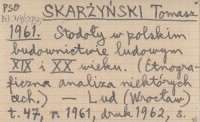 PSO SKARŻYŃSKI Tomasz
1961. Stodoły w polskim
budownictwie ludowym
XIX i XX wieku. (Etnogra-
ficzna analiza niektórych
cech.) — Lud (Wrocław)
t. 47, r. 1961, druk 1962, s.